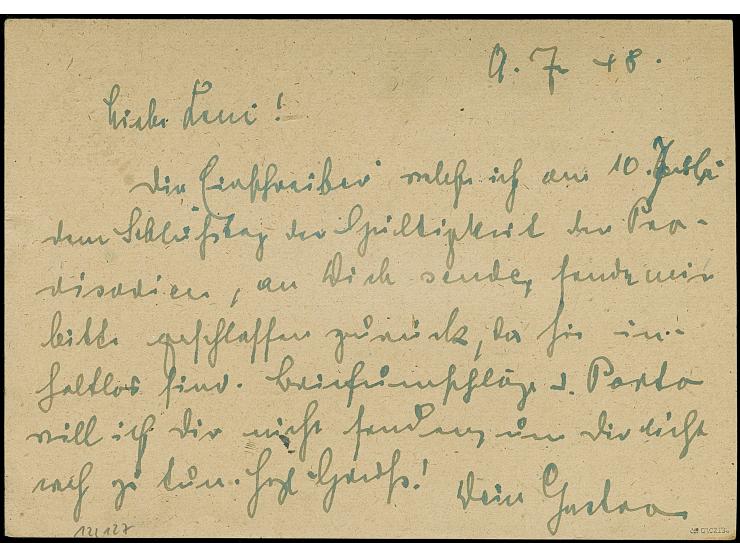 9. 7. 48.
Liebe Leni!
Die Einschreiber welche ich am 10. Juli
dem Schlußtag der Gültigkeit der Pro-
visorien, an Dich sende, sende mir
bitte geschlossen zurück, da sie in-
haltlos sind. Briefumschläge u. Porto
will ich Dir nicht senden, um Dir nicht
weh zu tun. Herzl. Grüße!
Dein Gustav
121 127